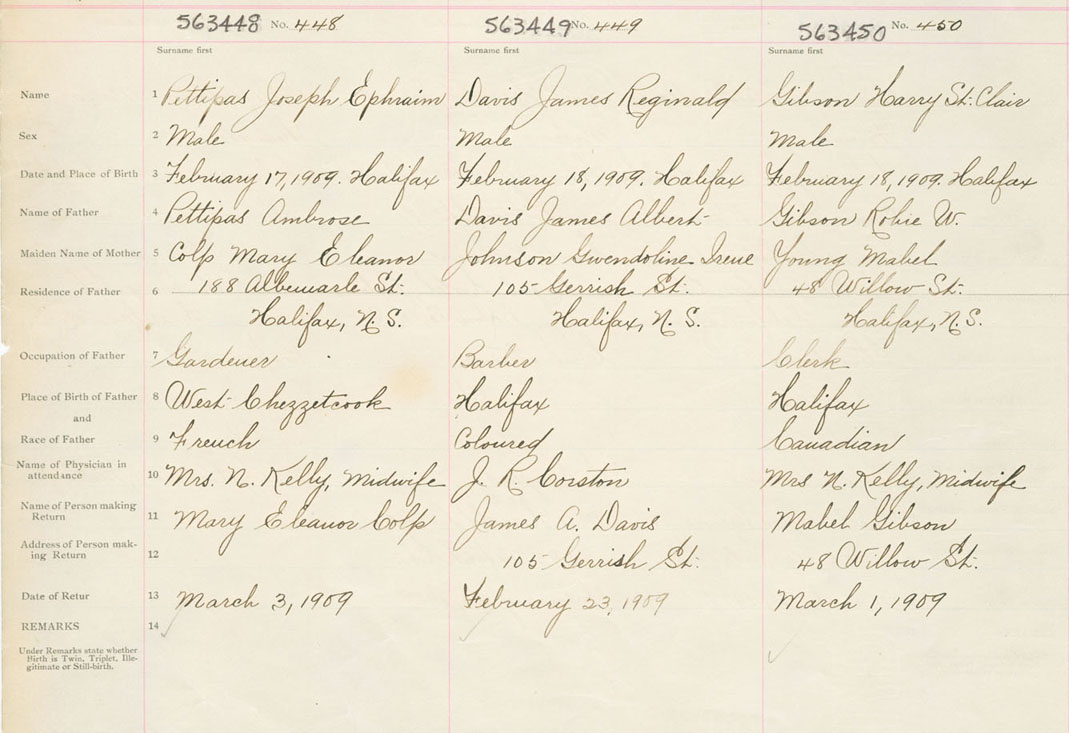 563448 No. 448 563449 No. 449 563450 No. 450
Surname first Surname first Surname first
Name 1 Pettipas Joseph Ephraim Davis James Reginald Gibson Harry St. Clair
Sex 2 Male Male Male
Date and Place of Birth 3 February 17, 1909. Halifax February 18, 1909. Halifax February 18, 1909. Halifax
Name of Father 4 Pettipas Ambrose Davis James Albert Gibson Robie W.
Maiden Name of Mother 5 Colp Mary Eleanor Johnson Gwendoline Irene Young Mabel
Residence of Father 6 188 Albemarle St. 105 Gerrish St. 48 Willow St.
Halifax, N.S. Halifax, N.S. Halifax, N.S.
Occupation of Father 7 Gardener Barber Clerk
Place of Birth of Father 8 West Chezzetcook Halifax Halifax
and
Race of Father 9 French Coloured Canadian
Name of Physician in
attendance 10 Mrs. N. Kelly, Midwife J. R. Corston Mrs N. Kelly, Midwife
Name of Person making
Return 11 Mary Eleanor Colp James A. Davis Mabel Gibson
Address of Person mak-
ing Return 12 105 Gerrish St. 48 Willow St.
Date of Retur 13 March 3, 1909 February 23, 1909 March 1, 1909
REMARKS 14
Under Remarks state whether
Birth is Twin, Triplet, Ille-
gitimate or Still-birth.